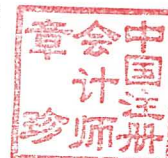 中国注册
会计师
章珍